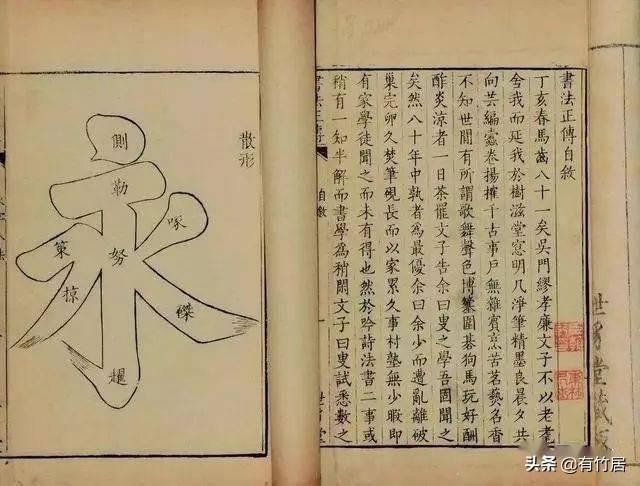 書法正傳自敘
丁亥春馬齒八十一矣吳門繆孝廉文子不以老耄
舍我而延我於樹滋堂窓明几淨筆精墨良晨夕共
向芸編蠧卷揚搉千古事戶無雜賓烹苦茗爇名香
不知世間有所謂歌舞聲色博簺圍碁狗馬玩好酬
酢炎涼者一日茶罷文子告余曰叟之學吾固聞之
矣然八十年中執者為最優余曰余少而遭亂離破
巢完卵久焚筆硯長而以家累久事村塾無少暇即
有家學徒聞之而未有得也然於吟詩法書二事或
稍有一知半解而書學為稍閑文子曰叟試悉數之
書法正傳
自敘
一
世豸堂
散形
永
側
勒
啄
策
努
掠
磔
趯
世豸堂藏板
头条 @有竹居